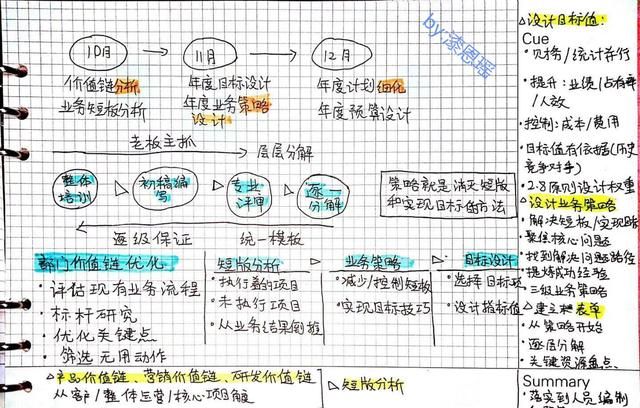 by:漆恩瑶
10月 11月 12月
价值链分析 年度目标设计 年度计划细化
业务短板分析 年度业务策略 年度预算设计
设计
老板主抓 层层分解
整体 初稿编 专业 逐一
培训 写 评审 分解
策略就是消灭短板
和实现目标值方法
逐级保证 统一模板
部门价值链优化 短版分析 业务策略 目标设计
·评估现有业务流程 ·执行着的项目 ·减少/控制短板 ·选择目标项
·标杆研究 ·未执行项目 ·实现目标技巧 ·设计指标值
·优化关键点 ·从业务结果倒推
·筛选无用动作
△产品价值链、营销价值链、研发价值链 △短版分析
从客户/整体运营/核心项目解
△设计目标值:
Cue
·财务/统计并行
·提升:业绩/占有率
/人效
·控制:成本/费用
·目标值有依据(历史
竞争对手)
·2.8原则设计权重
△设计业务策略
·解决短板/实现路
·聚焦核心问题
·找到解决问题路径
·提炼成功经验
·三级业务策略
△建立表单
·从策略开始
·逐层分解
·关键资源盘点
Summary
·落实到人员编制